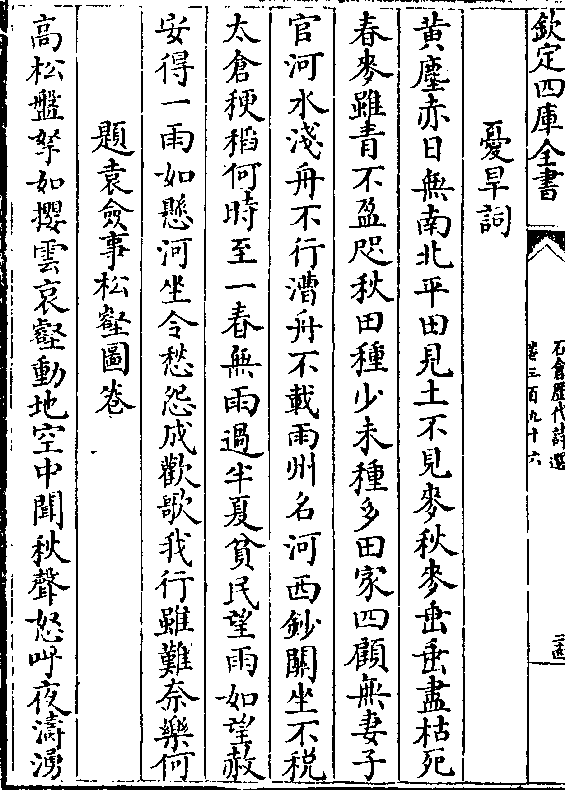 欽定四庫全書
石倉歷代詩選
卷三百九十六
憂旱詞
黃塵赤日無南北平田見土不見麥秋麥垂垂盡枯死
春麥雖青不盈咫秋田種少未種多田家四顧無妻子
官河水淺舟不行漕舟不載兩州名河西鈔關坐不税
太倉稉稻何時至一春無雨過半夏貧民望雨如望赦
安得一雨如懸河坐令愁怨成歡歌我行雖難奈樂何
題袁僉事松壑圖卷
高松盤拏如攫雲哀壑動地空中聞秋聲怒呌夜濤湧